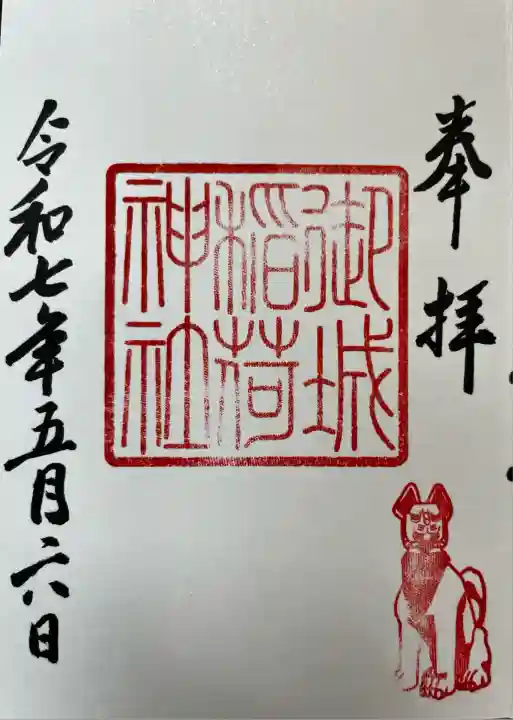 奉拝
御城
稲荷
神社
令和七年五月六日